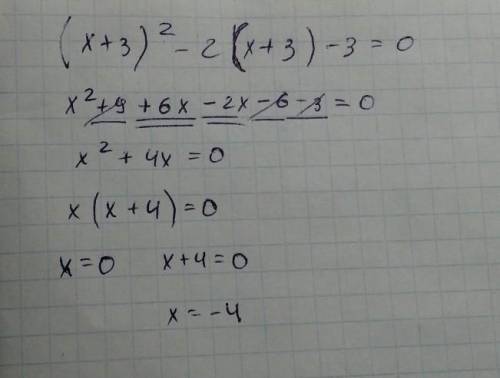 (x+3)² - 2(x+3) - 3 = 0
x² + 9 + 6x - 2x - 6 - 3 = 0
x² + 4x = 0
x(x+4) = 0
x = 0 x+4 = 0
x = -4